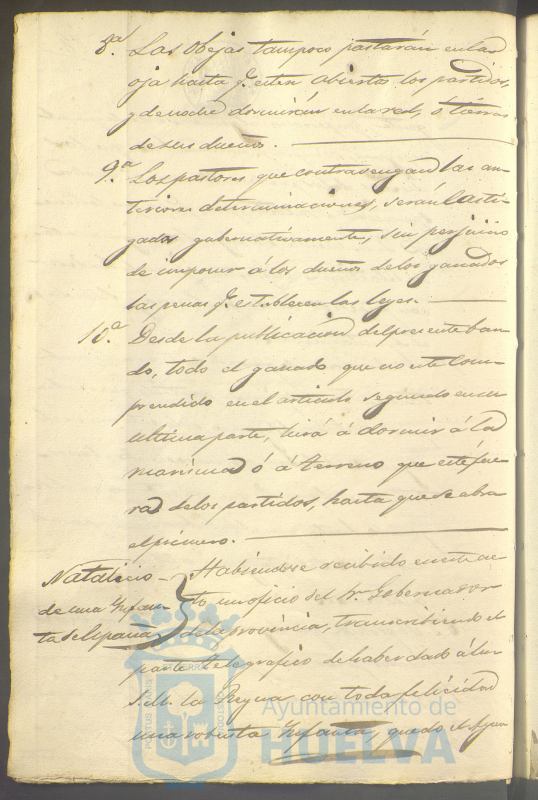 8ª. Las Obejas tampoco pastarán en las
oja hasta q.e esten abiertos los partidos,
y de noche dormirán en la red, ó tierras
de sus dueños.
9.ª Los pastores que contravengan las an-
teriores determinaciones, serán Casti-
gados gubernativamente, sin perjuicio
de imponer á los dueños de los ganados
las penas q.e establecen las leyes.
10.ª Desde la publicacion del presente ban-
do, todo el ganado que no esté Com-
prendido en el articulo segundo en su
ultima parte, hirá á dormir á la
marisma ó á terreno que esté fue-
ra de los partidos, hasta que se abra
el primero.
Natalicio
de una Ynfan-
ta de España
Habiendose recibido en este ac-
to un oficio del Sr. Gobernador
de la provincia, transcribiendo el
parte telegrafico de haber dado á luz
S. M. la Reyna con toda felicidad
una robusta Ynfanta, quedó el Ayun-
PORTUS MARIS ET TERRAE CUSTODIA
Ayuntamiento de
HUELVA